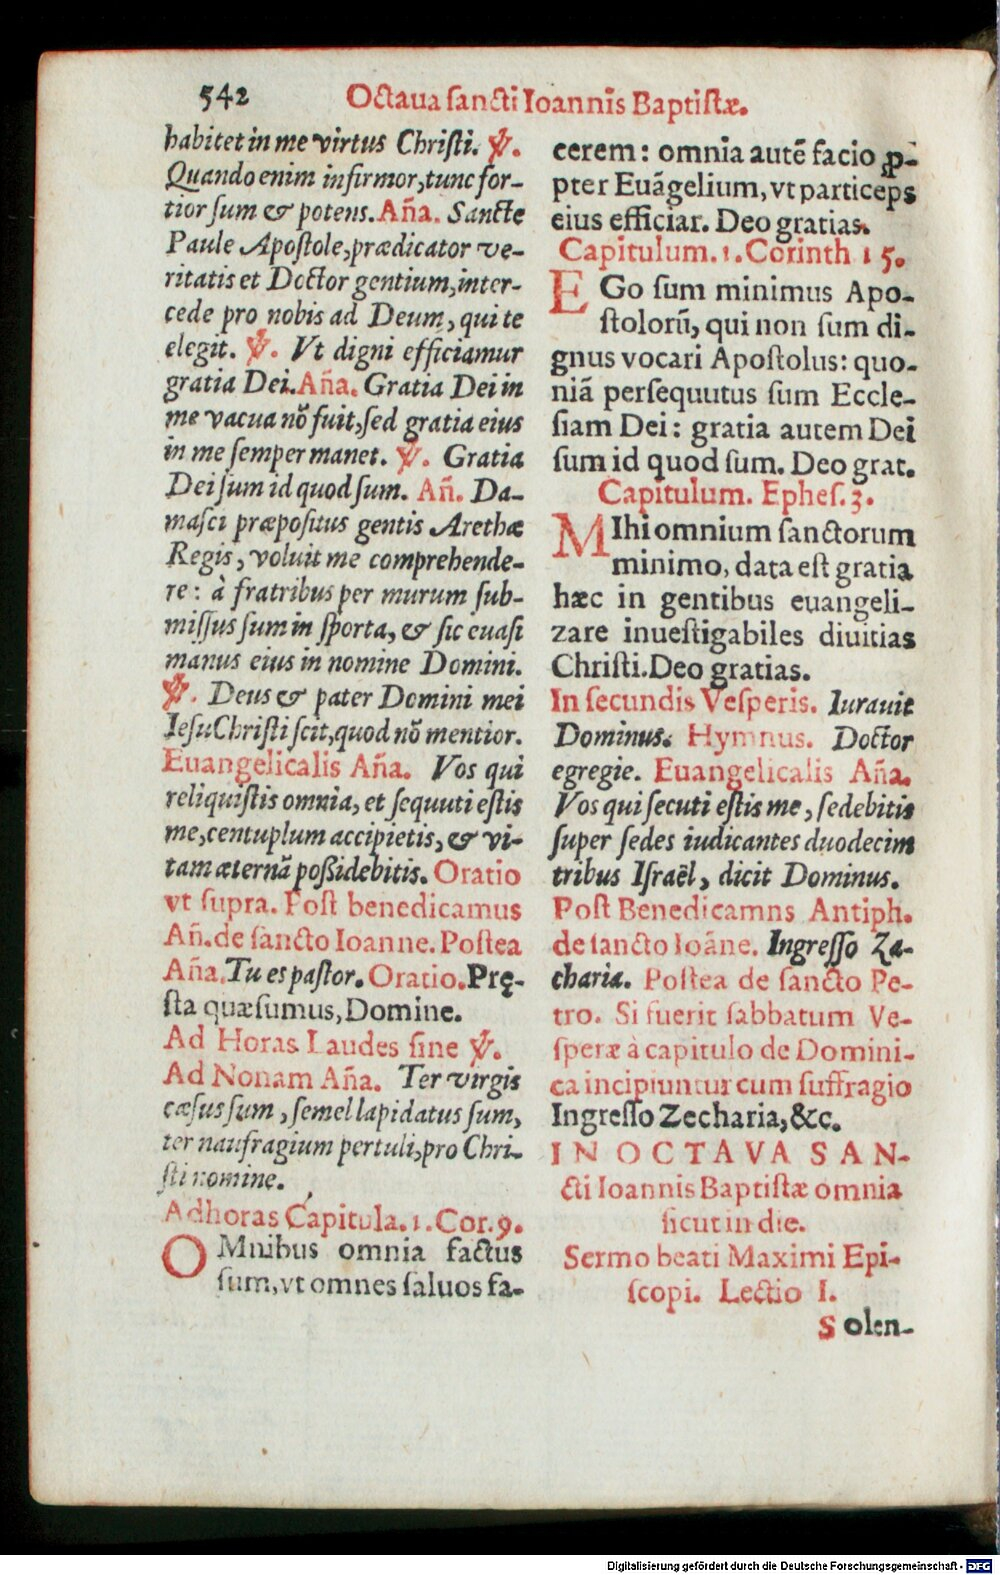 542 Octaua sancti Ioannis Baptistæ.
habitet in me virtus Christi. ℣.
Quando enim infirmor, tunc for-
tior sum & potens. Aña. Sancte
Paule Apostole, prædicator ve-
ritatis et Doctor gentium, inter-
cede pro nobis ad Deum, qui te
elegit. ℣. Vt digni efficiamur
gratia Dei. Aña. Gratia Dei in
me vacua nõ fuit, sed gratia eius
in me semper manet. ℣. Gratia
Dei sum id quod sum. Añ. Da-
masci præpositus gentis Arethæ
Regis, voluit me comprehende-
re: à fratribus per murum sub-
missus sum in sporta, & sic euasi
manus eius in nomine Domini.
℣. Deus & pater Domini mei
Iesu Christi scit, quod nõ mentior.
Euangelicalis Aña. Vos qui
reliquistis omnia, et sequuti estis
me, centuplum accipietis, & vi-
tam æternã poßidebitis. Oratio
vt supra. Post benedicamus
Añ. de sancto Ioanne. Postea
Aña. Tu es pastor. Oratio. Prę-
sta quæsumus, Domine.
Ad Horas Laudes sine ℣.
Ad Nonam Aña. Ter virgis
cæsus sum, semel lapidatus sum,
ter naufragium pertuli, pro Chri-
sti nomine.
Ad horas Capitula. 1. Cor. 9.
OMnibus omnia factus
sum, vt omnes saluos fa-
cerem: omnia autẽ facio ꝓ-
pter Euãgelium, vt particeps
eius efficiar. Deo gratias.
Capitulum. 1. Corinth 15.
EGo sum minimus Apo-
stolorũ, qui non sum di-
gnus vocari Apostolus: quo-
niã persequutus sum Eccle-
siam Dei: gratia autem Dei
sum id quod sum. Deo grat.
Capitulum. Ephes. 3.
MIhi omnium sanctorum
minimo, data est gratia
hæc in gentibus euangeli-
zare inuestigabiles diuitias
Christi. Deo gratias.
In secundis Vesperis. Iurauit
Dominus. Hymnus. Doctor
egregie. Euangelicalis Aña.
Vos qui secuti estis me, sedebitis
super sedes iudicantes duodecim
tribus Israël, dicit Dominus.
Post Benedicamns Antiph.
de sancto Ioãne. Ingresso Za-
charia. Postea de sancto Pe-
tro. Si fuerit sabbatum Ve-
speræ à capitulo de Domini-
ca incipiuntur cum suffragio
Ingresso Zecharia, &c.
IN OCTAVA SAN-
cti Ioannis Baptistæ omnia
sicut in die.
Sermo beati Maximi Epi-
scopi. Lectio I.
Solen-
Digitalisierung gefördert durch die Deutsche Forschungsgemeinschaft - DFG